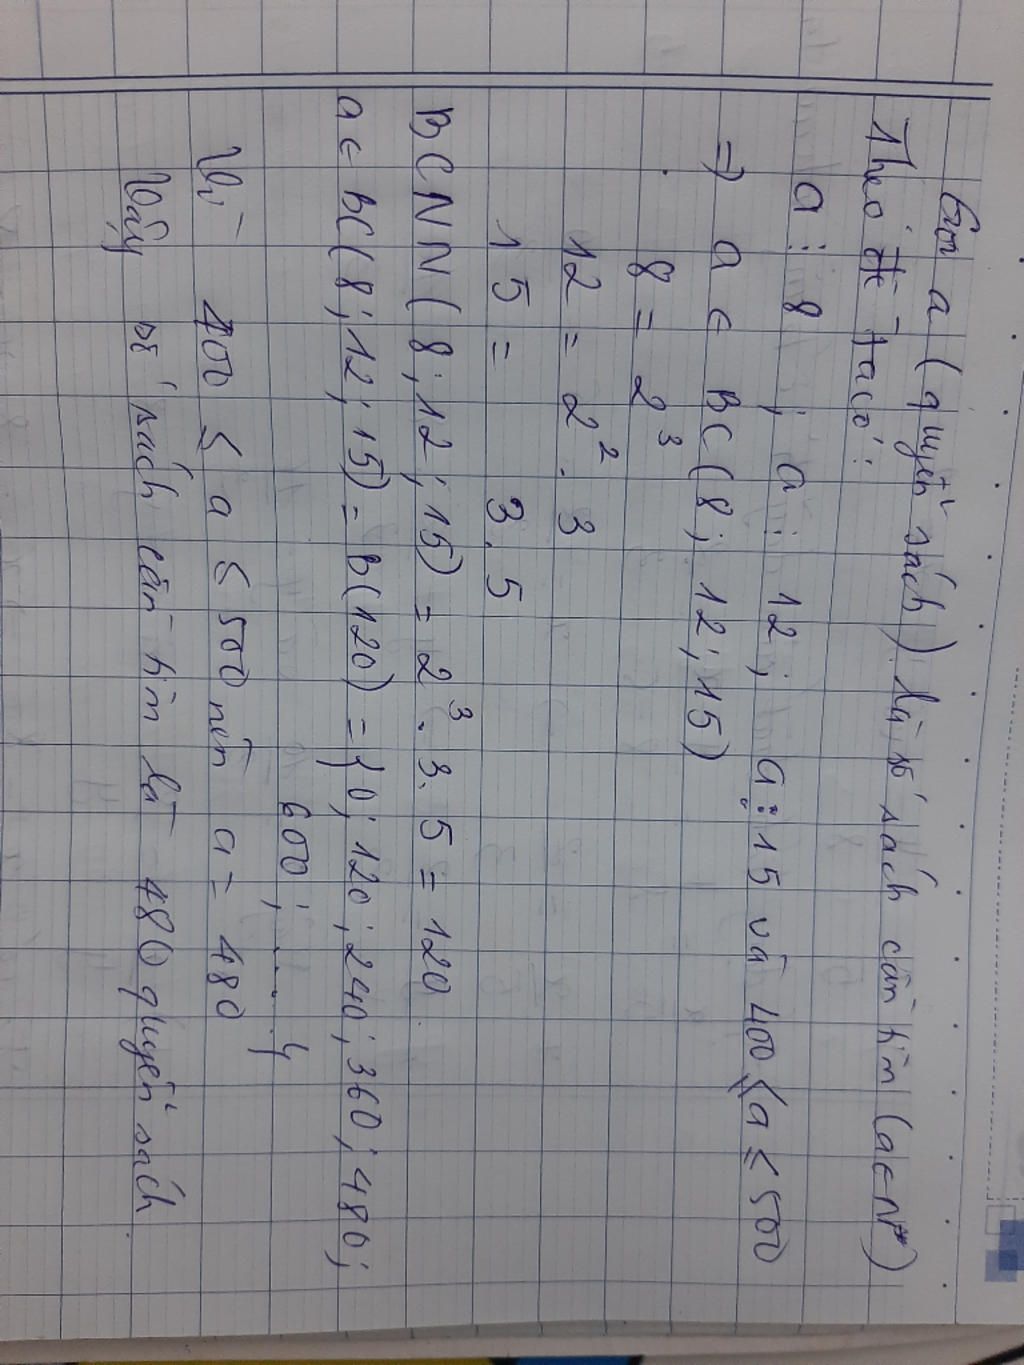 Gọi a (quyển sách) là số sách cần tìm (a∈N*)
Theo đề ta có:
a⋮8 ; a⋮12 ; a⋮15 và 400 ≤ a ≤ 500
=> a ∈ BC(8; 12; 15)
8 = 2³
12 = 2². 3
15 = 3. 5
BCNN(8;12;15) = 2³. 3. 5 = 120
a∈ BC(8;12;15) = B(120) = {0; 120; 240; 360; 480;
600; .....}
Vì 400 ≤ a ≤ 500 nên a = 480
Vậy số sách cần tìm là 480 quyển sách.